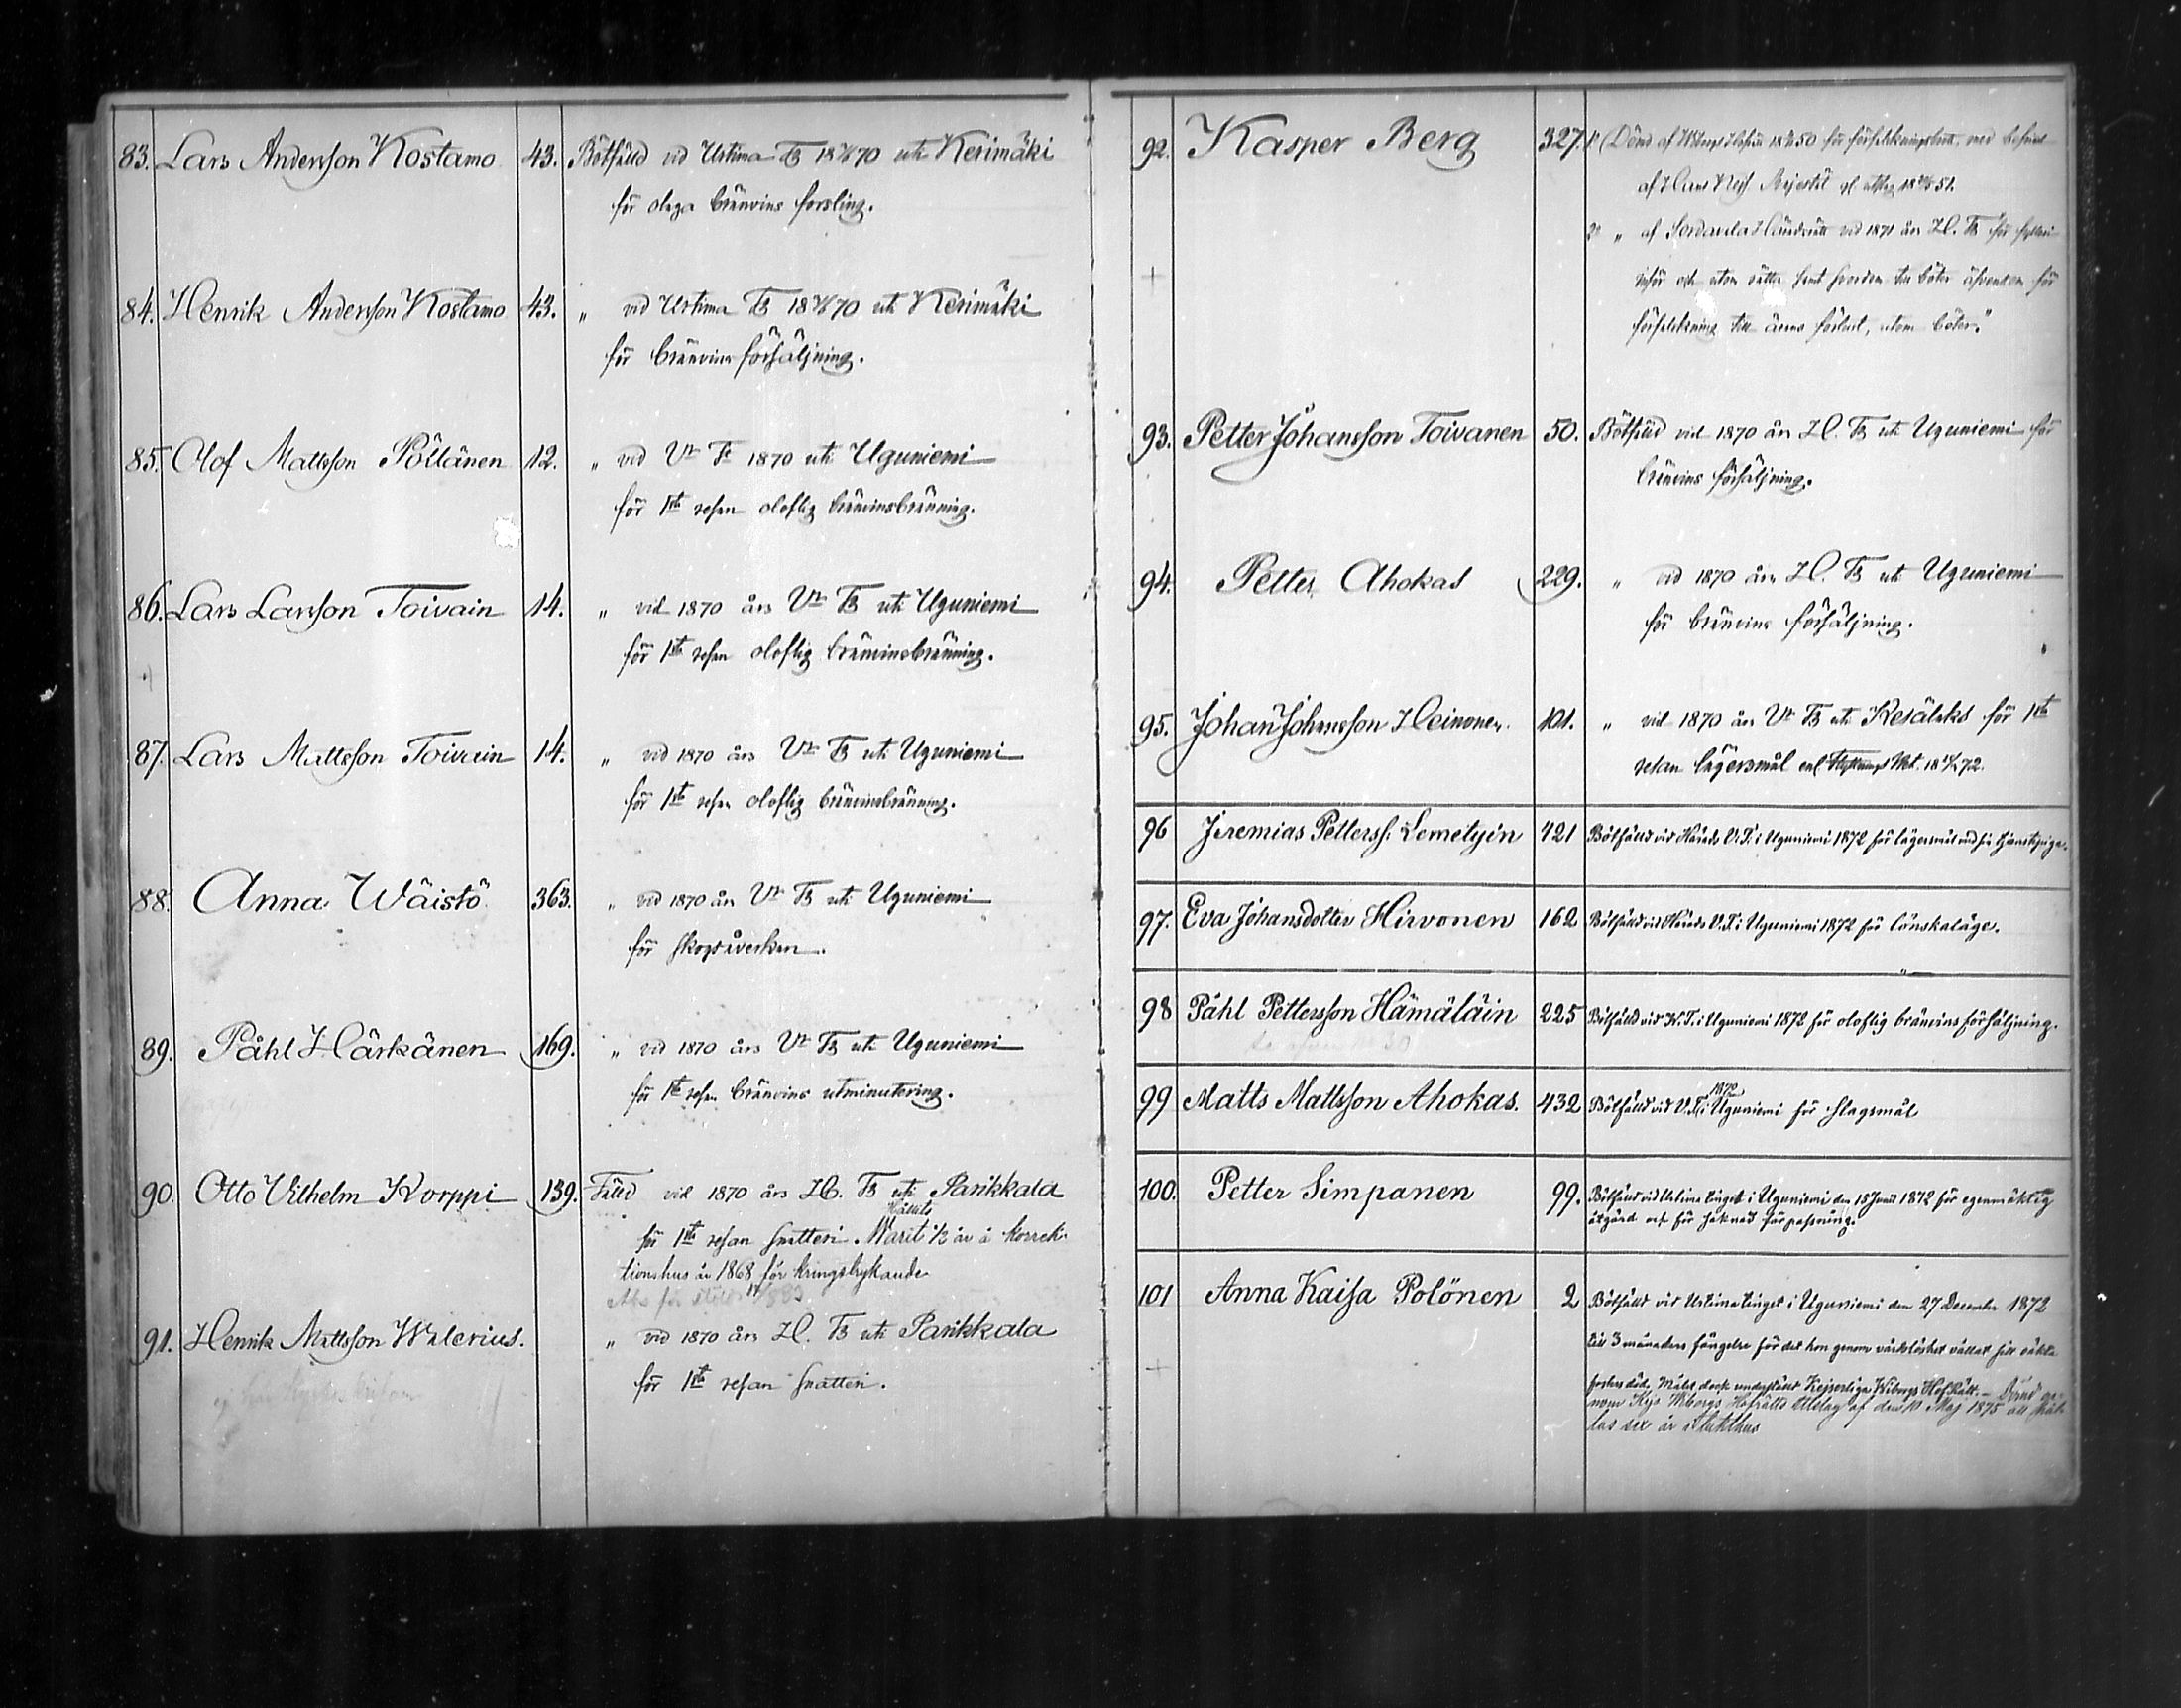 83. Lars Andersson Kostamo 43. Bötfäld vid Urtima Tg 18 70 uti Kerimäki
för olaga bränvins forsling.
84. Henrik Andersson Kostamo 43. " vid Urtima Tg 18 70 uti Kerimäki
för bränvins försäljning.
85. Olof Mattsson Pöllänen 12. " vid Vr Tg 1870 uti Uguniemi
för 1sta resan oloflig bränvinsbränning.
86. Lars Larsson Toivain 14. " vid 1870 års Vr Tg uti Uguniemi
för 1sta resan oloflig bränvinsbränning.
87. Lars Mattsson Toivain 14. " vid 1870 års Vr Tg uti Uguniemi
för 1sta resan oloflig bränvinsbränning.
88. Anna Wäistö 363. " vid 1870 års Vr Tg uti Uguniemi
för skogsåverkan.
89. Påhl Härkänen 169. " vid 1870 års Vr Tg uti Uguniemi
för 1sta resan bränvins utminutering.
90. Otto Vilhelm Korppi 139. Fäld vid 1870 års H. Tg uti Parikkala
för 1sta resan snatteri. Varit 1/2 år å korrek-
tionshus år 1868 för kringstrykande
91. Henrik Mattsson Valerius. " vid 1870 års H. Tg uti Parikkala
för 1sta resan snatteri.
92. Kasper Berg 327. 1o (Dömd af 50 för
af Hans Kejs. Majestät 51.
2o " af Sordavala Häradsrätt vid 1871 års H. Tg för
böter äfvensom för
till äras förlust, utom böter."
93. Petter Johansson Toivanen 50. Bötfäld vid 1870 års H. Tg uti Uguniemi för
bränvins försäljning.
94. Petter Ahokas 229. " vid 1870 års H. Tg uti Uguniemi
för bränvins försäljning.
95. Johan Johansson Heinonen. 101. " vid 1870 års Vr Tg uti Kesälaks för 1sta
resan lägersmål enl. 72.
96 Jeremias Petterss. Lemetyin 421 Bötfälld vid Härads V.T. i Uguniemi 1872 för lägersmål med sin tjenstepiga.
97. Eva Johansdotter Hirvonen 162 Bötfälld vid Härads V.T. i Uguniemi 1872 för lönskaläge.
98 Påhl Pettersson Hämäläin 225 Bötfälld vid V.T. i Uguniemi 1872 för oloflig bränvinsförsäljning.
99 Matts Mattsson Ahokas. 432 Bötfälld vid V.T. 1870 i Uguniemi för slagsmål
100. Petter Simpanen 99. Bötfälld vid Urtima tinget i Uguniemi den 15 Juni 1872 för egenmäktig
åtgärd och för saknad förpassning.
101 Anna Kaisa Polönen 2 Bötfälld vid Urtima tinget i Uguniemi den 27 December 1872
till 3 månaders fängelse för det hon genom vårdslöshet vållat sitt oäkta
fosters död. Målet dock underställdt Kejserliga Wiborgs Hof Rätt. – Dömd ge-
nom Kejs Wiborgs Hofrätts Utslag af den 10 Maj 1875 att hål-
las sex år i Tukthus